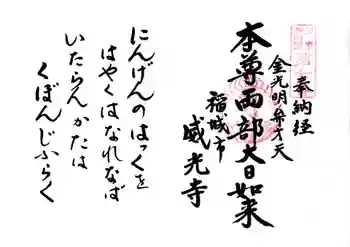 奉納経
金光明弁才天
本尊両部大日如来
稲城市
威光寺
にんげんのはっくを
はやくはなれなば
いたらんかたは
くぼんじふらく